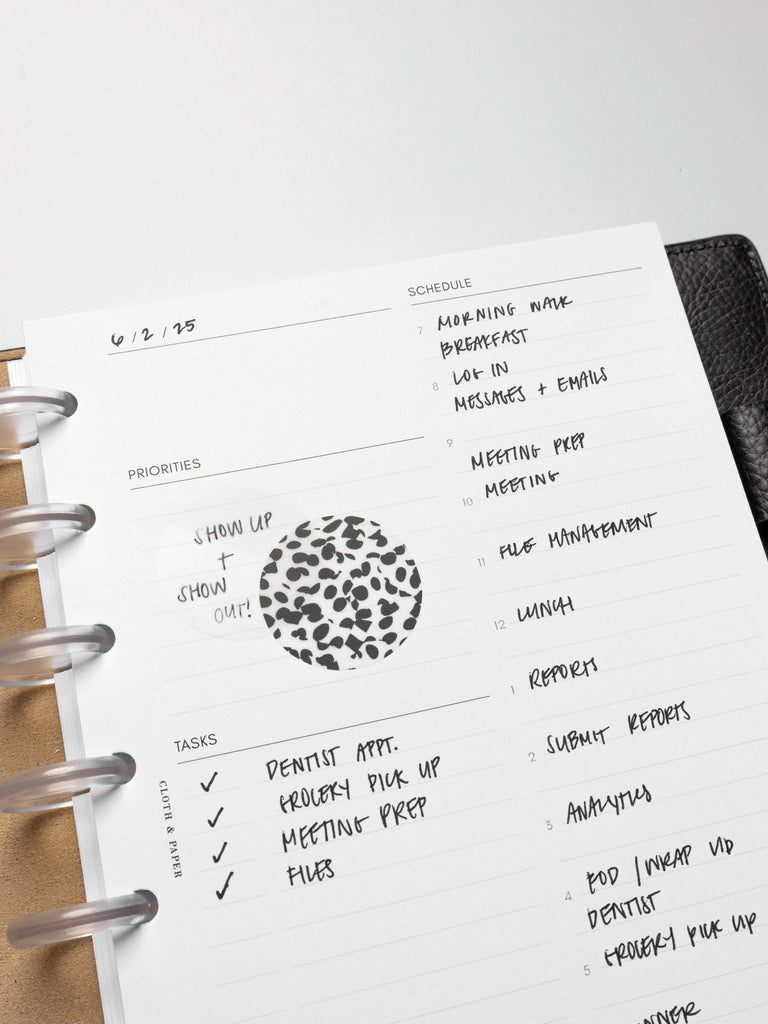 6/2/25
PRIORITIES
SHOW UP
+
SHOW
OUT!
TASKS
✓ DENTIST APPT.
✓ GROCERY PICK UP
✓ MEETING PREP
✓ FILES
CLOTH & PAPER
SCHEDULE
7 MORNING WALK
BREAKFAST
8 LOG IN
MESSAGES + EMAILS
9
MEETING PREP
10 MEETING
11 FILE MANAGEMENT
12 LUNCH
1 REPORTS
2 SUBMIT REPORTS
3 ANALYTICS
4 EOD / WRAP UP
DENTIST
5 GROCERY PICK UP